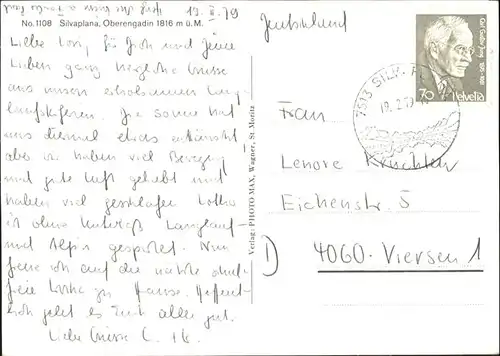 19. II. 79
No. 1108 Silvaplana, Oberengadin 1816 m ü.M.
Liebe Lori, für Dich und Deine
Lieben ganz herzliche Grüsse
aus unseren erholsamen Lang
laufskiferien. Die Sonne hat
uns diesmal etwas enttäuscht
aber wir haben viel Bewegung
und gute Luft gehabt und
haben viel geschlafen. Lotho
ist ohne Langlauf
und Alpin gespurtet. Nun
freue ich mich auf die nächste
freie Woche zu Hause. Hoffent-
lich geht es Euch alles gut.
Liebe Grüsse C.
Verlag: PHOTO MAX, Wagner, St. Moritz
Deutschland
Carl Gustav Jung 1875-1961
70 Helvetia
7513 SILV
19.2.79
Frau
Lenore Kruchten
Eichenstr. 5
D 4060-Viersen 1